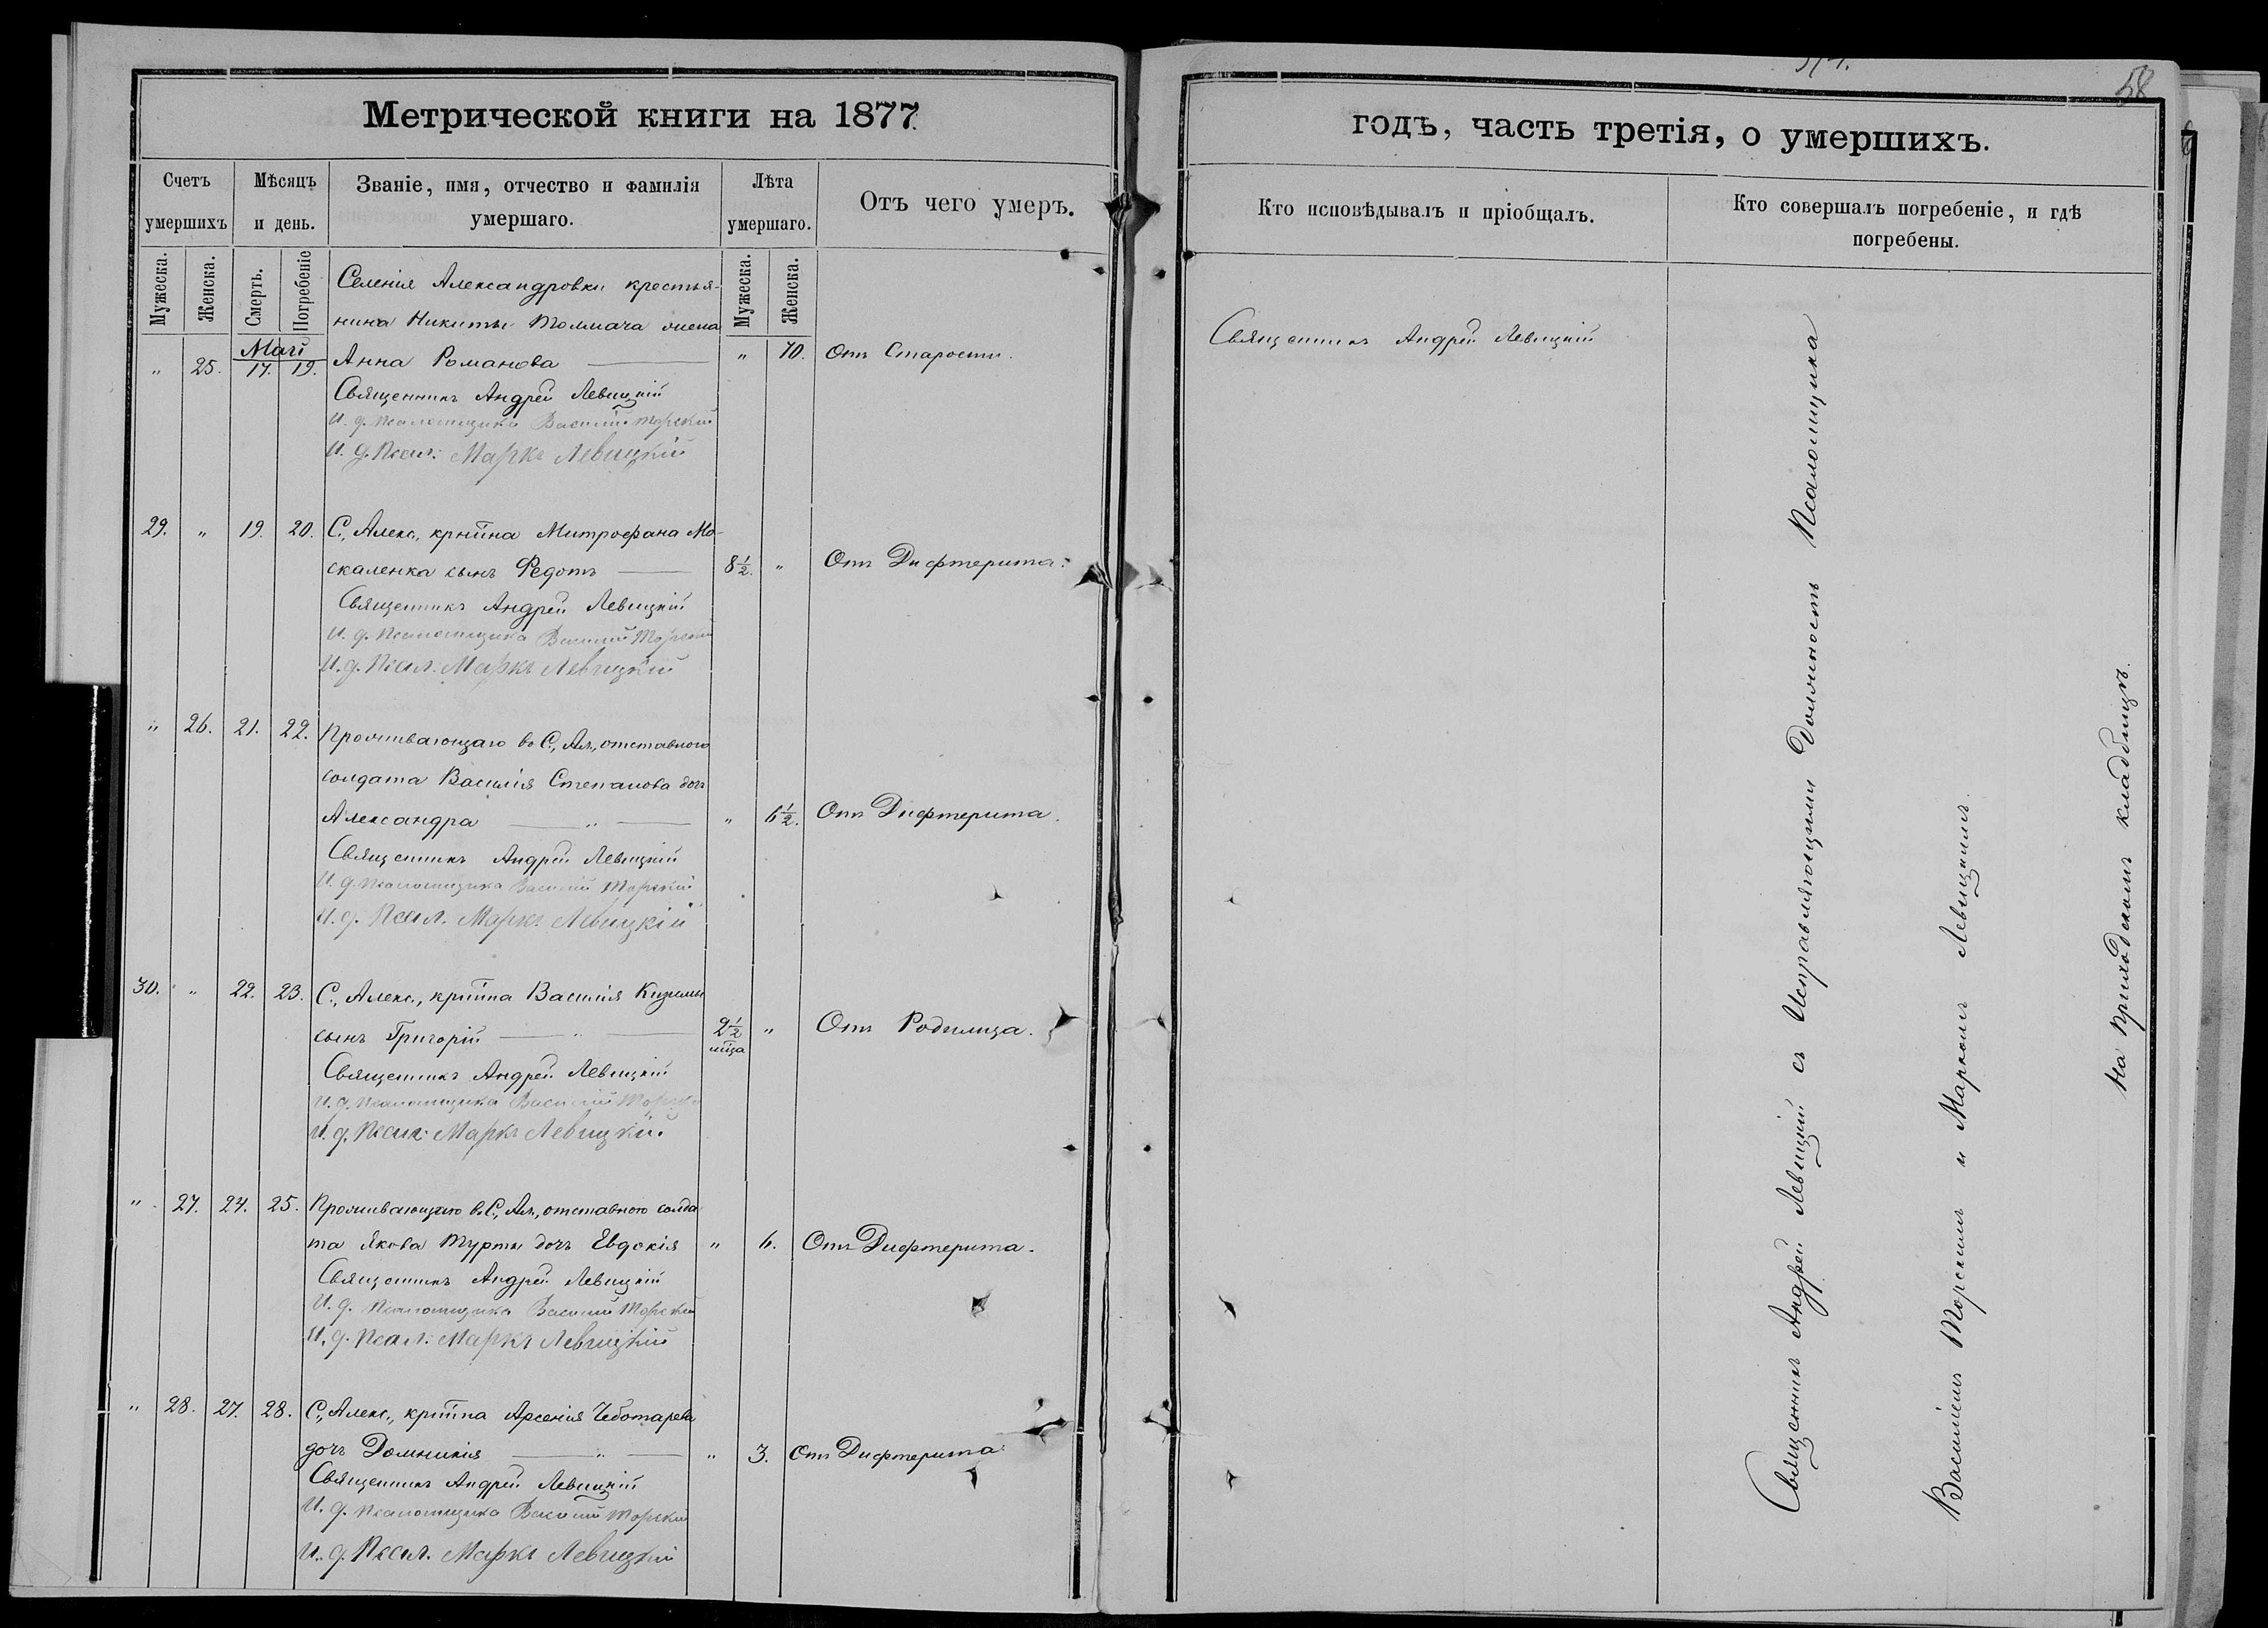 Метрической книги на 1877
Счетъ умершихъ
Мѣсяцъ и день.
Званіе, имя, отчество и фамилія умершаго.
Лѣта умершаго.
Отъ чего умеръ.
Мужеска.
Женска.
Смерть.
Погребеніе
Мужеска.
Женска.
Селенія Александровки крестья-
нина Никиты Толмача жена
Май
„ 25. 17. 19. Анна Романова — „ 70. Отъ Старости.
Священникъ Андрей Левицкій
И. д. Псаломщика Василій Торскій
И. д. Псал: Маркъ Левицкій
29. „ 19. 20. С., Алекс., кр͠тина Митрофана Мо-
скаленка сынъ Федотъ — 8½. „ Отъ Дифтерита.
Священникъ Андрей Левицкій
И. д. Псаломщика Василій Торскій
И. д. Псал. Маркъ Левицкій
„ 26. 21. 22. Проживающаго в С., Ал., отставного
солдата Василія Степанова дочь
Александра — „ — „ 6½. Отъ Дифтерита.
Священникъ Андрей Левицкій
И. д. Псаломщика Василій Торскій
И. д. Псал. Маркъ Левицкій
30. „ 22. 23. С., Алекс., кр͠тина Василія Кизимы
сынъ Григорій — „ — 2½ мц͠а „ Отъ Родимца.
Священникъ Андрей Левицкій
И. д. Псаломщика Василій Торскій
И. д. Псал: Маркъ Левицкій
„ 27. 24. 25. Проживающаго в С., Ал., отставного солда
та Якова Турты дочь Евдокія „ 6. Отъ Дифтерита.
Священникъ Андрей Левицкій
И. д. Псаломщика Василій Торскій
И. д. Псал: Маркъ Левицкій
„ 28. 27. 28. С., Алекс., кр͠тина Арсенія Чеботарева
дочь Домникія — „ — „ 3. Отъ Дифтерита.
Священникъ Андрей Левицкій
И. д. Псаломщика Василій Торскій
И. д. Псал. Маркъ Левицкій
58
годъ, часть третія, о умершихъ.
Кто исповѣдывалъ и пріобщалъ.
Кто совершалъ погребеніе, и гдѣ погребены.
Священникъ Андрей Левицкій
Священникъ Андрей Левицкій съ Исправляющими Должность Псаломщика
Василіемъ Торскимъ и Маркомъ Левицкимъ.
На приходскомъ кладбищѣ.